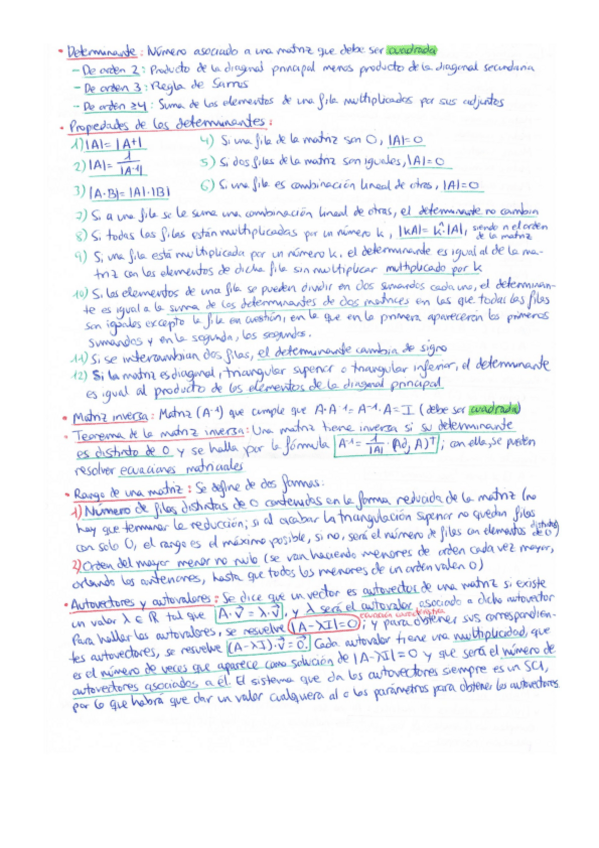 • Determinante: Número asociado a una matriz que debe ser cuadrada
- De orden 2: Producto de la diagonal principal menos producto de la diagonal secundaria
- De orden 3: Regla de Sarrus
- De orden ≥4: Suma de los elementos de una fila multiplicados por sus adjuntos
• Propiedades de los determinantes:
1) |A| = |A^t|
4) Si una fila de la matriz son 0, |A| = 0
2) |A| = 1/|A^-1|
5) Si dos filas de la matriz son iguales, |A| = 0
3) |A·B| = |A|·|B|
6) Si una fila es combinación lineal de otras, |A| = 0
7) Si a una fila se le suma una combinación lineal de otras, el determinante no cambia
8) Si todas las filas están multiplicadas por un número k, |kA| = k^n·|A|, siendo n el orden
de la matriz
9) Si una fila está multiplicada por un número k, el determinante es igual al de la ma-
triz con los elementos de dicha fila sin multiplicar multiplicado por k
10) Si los elementos de una fila se pueden dividir en dos sumandos cada uno, el determinan-
te es igual a la suma de los determinantes de dos matrices en las que todas las filas
son iguales excepto la fila en cuestión, en la que en la primera aparecerán los primeros
sumandos y en la segunda, los segundos.
11) Si se intercambian dos filas, el determinante cambia de signo
12) Si la matriz es diagonal, triangular superior o triangular inferior, el determinante
es igual al producto de los elementos de la diagonal principal
• Matriz inversa: Matriz (A^-1) que cumple que A·A^-1 = A^-1·A = I (debe ser cuadrada)
• Teorema de la matriz inversa: Una matriz tiene inversa si su determinante
es distinto de 0 y se halla por la fórmula A^-1 = 1/|A| · (Adj A)^t; con ella, se pueden
resolver ecuaciones matriciales
• Rango de una matriz: Se define de dos formas:
1) Número de filas distintas de 0 contenidas en la forma reducida de la matriz (no
hay que terminar la reducción; si al acabar la triangulación superior no quedan filas
con solo 0, el rango es el máximo posible, si no, será el número de filas con elementos distintos
de 0)
2) Orden del mayor menor no nulo (se van haciendo menores de orden cada vez mayor,
orlando los anteriores, hasta que todos los menores de un orden valen 0)
• Autovectores y autovalores: Se dice que un vector es autovector de una matriz si existe
un valor λ ∈ ℝ tal que A·v⃗ = λ·v⃗, y λ será el autovalor asociado a dicho autovector
Para hallar los autovalores, se resuelve |A-λI| = 0; y para obtener sus correspondien-
tes autovectores, se resuelve (A-λI)·v⃗ = 0⃗. Cada autovalor tiene una multiplicidad, que
es el número de veces que aparece como solución de |A-λI| = 0 y que será el número de
autovectores asociados a él. El sistema que da los autovectores siempre es un SCI,
por lo que habrá que dar un valor cualquiera al o los parámetros para obtener los autovectores